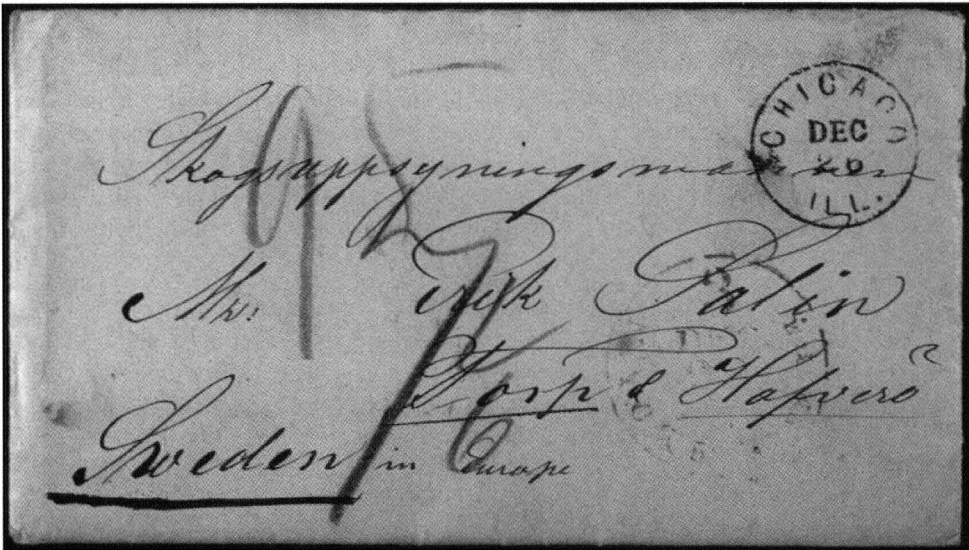 CHICAGO
DEC
26
ILL.
Skogsuppsyningsmannen
Mr: Erik Palin
Torp & Hafverö
Sweden in Europe